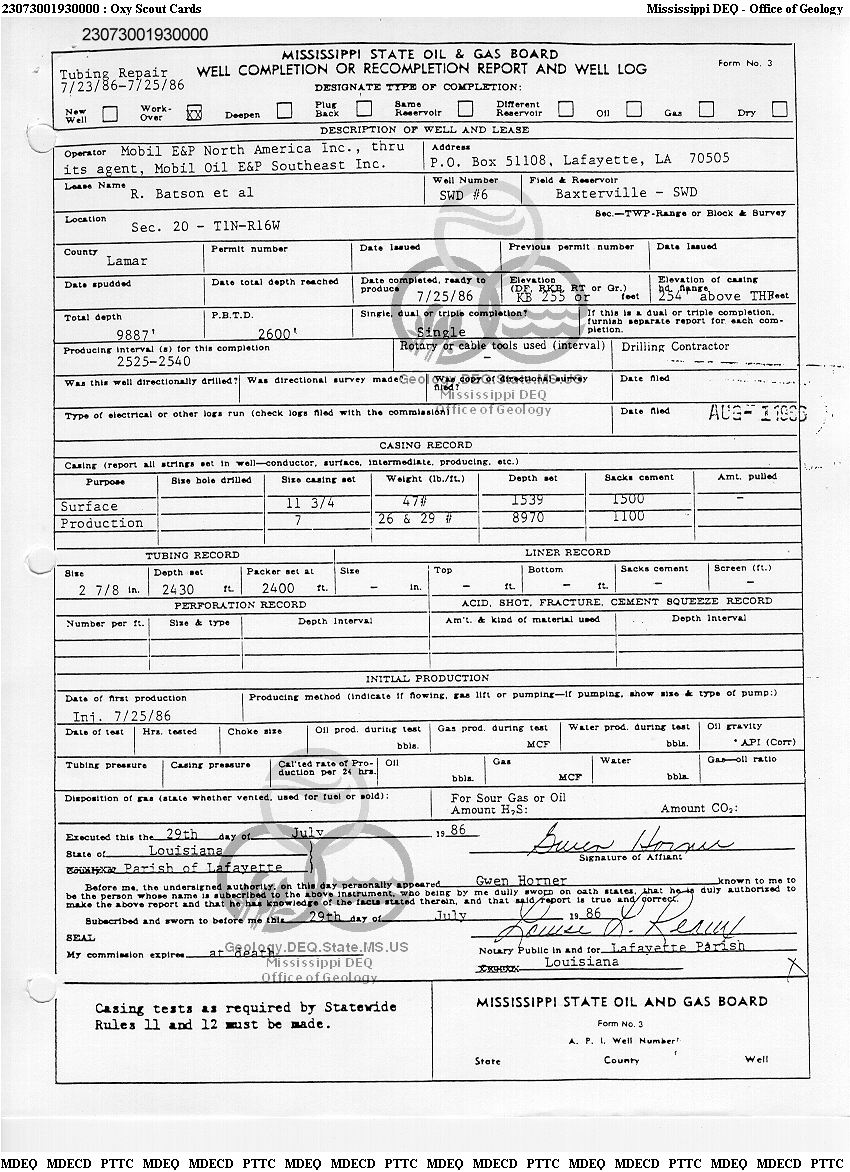 23073001930000 : Oxy Scout Cards Mississippi DEQ - Office of Geology
23073001930000
MISSISSIPPI STATE OIL & GAS BOARD
Tubing Repair WELL COMPLETION OR RECOMPLETION REPORT AND WELL LOG Form No. 3
7/23/86-7/25/86
DESIGNATE TYPE OF COMPLETION:
New Well Work-Over XX Deepen Plug Back Same Reservoir Different Reservoir Oil Gas Dry
DESCRIPTION OF WELL AND LEASE
Operator Mobil E&P North America Inc., thru Address
its agent, Mobil Oil E&P Southeast Inc. P.O. Box 51108, Lafayette, LA 70505
Lease Name R. Batson et al Well Number SWD #6 Field & Reservoir Baxterville - SWD
Location Sec. 20 - T1N-R16W Sec.—TWP-Range or Block & Survey
County Lamar Permit number Date Issued Previous permit number Date Issued
Date spudded Date total depth reached Date completed, ready to produce 7/25/86 Elevation (DF, RKB, RT or Gr.) KB 255 or feet Elevation of casing hd. flange 254' above THF feet
Total depth 9887' P.B.T.D. 2600' Single, dual or triple completion? Single If this is a dual or triple completion, furnish separate report for each completion.
Producing interval (s) for this completion 2525-2540 Rotary or cable tools used (interval) - Drilling Contractor
Was this well directionally drilled? Was directional survey made? Was copy of directional survey filed? Date filed
Geology.DEQ.State.MS.US
Mississippi DEQ
Office of Geology
Type of electrical or other logs run (check logs filed with the commission) Date filed AUG - 1 1986
CASING RECORD
Casing (report all strings set in well—conductor, surface, intermediate, producing, etc.)
Purpose Size hole drilled Size casing set Weight (lb./ft.) Depth set Sacks cement Amt. pulled
Surface 11 3/4 47# 1539 1500 -
Production 7 26 & 29 # 8970 1100
TUBING RECORD LINER RECORD
Size Depth set Packer set at Size Top Bottom Sacks cement Screen (ft.)
2 7/8 in. 2430 ft. 2400 ft. - in. - ft. - ft. - -
PERFORATION RECORD ACID, SHOT, FRACTURE, CEMENT SQUEEZE RECORD
Number per ft. Size & type Depth Interval Am't. & kind of material used Depth Interval
INITIAL PRODUCTION
Date of first production Producing method (indicate if flowing, gas lift or pumping—if pumping, show size & type of pump:)
Inj. 7/25/86
Date of test Hrs. tested Choke size Oil prod. during test bbls. Gas prod. during test MCF Water prod. during test bbls. Oil gravity ° API (Corr)
Tubing pressure Casing pressure Cal'ted rate of Production per 24 hrs. Oil bbls. Gas MCF Water bbls. Gas—oil ratio
Disposition of gas (state whether vented, used for fuel or sold): For Sour Gas or Oil
Amount H₂S: Amount CO₂:
Executed this the 29th day of July 19 86 Gwen Horner
State of Louisiana Signature of Affiant
Parish of Lafayette
Before me, the undersigned authority, on this day personally appeared Gwen Horner known to me to
be the person whose name is subscribed to the above instrument, who being by me dully sworn on oath states, that he is duly authorized to
make the above report and that he has knowledge of the facts stated therein, and that said report is true and correct.
Subscribed and sworn to before me this 29th day of July 19 86
SEAL
Geology.DEQ.State.MS.US
Mississippi DEQ
Office of Geology
My commission expires at death Notary Public in and for Lafayette Parish
Louisiana
Casing tests as required by Statewide
Rules 11 and 12 must be made.
MISSISSIPPI STATE OIL AND GAS BOARD
Form No. 3
A. P. I. Well Number
State County Well
MDEQ MDECD PTTC MDEQ MDECD PTTC MDEQ MDECD PTTC MDEQ MDECD PTTC MDEQ MDECD PTTC MDEQ MDECD PTTC